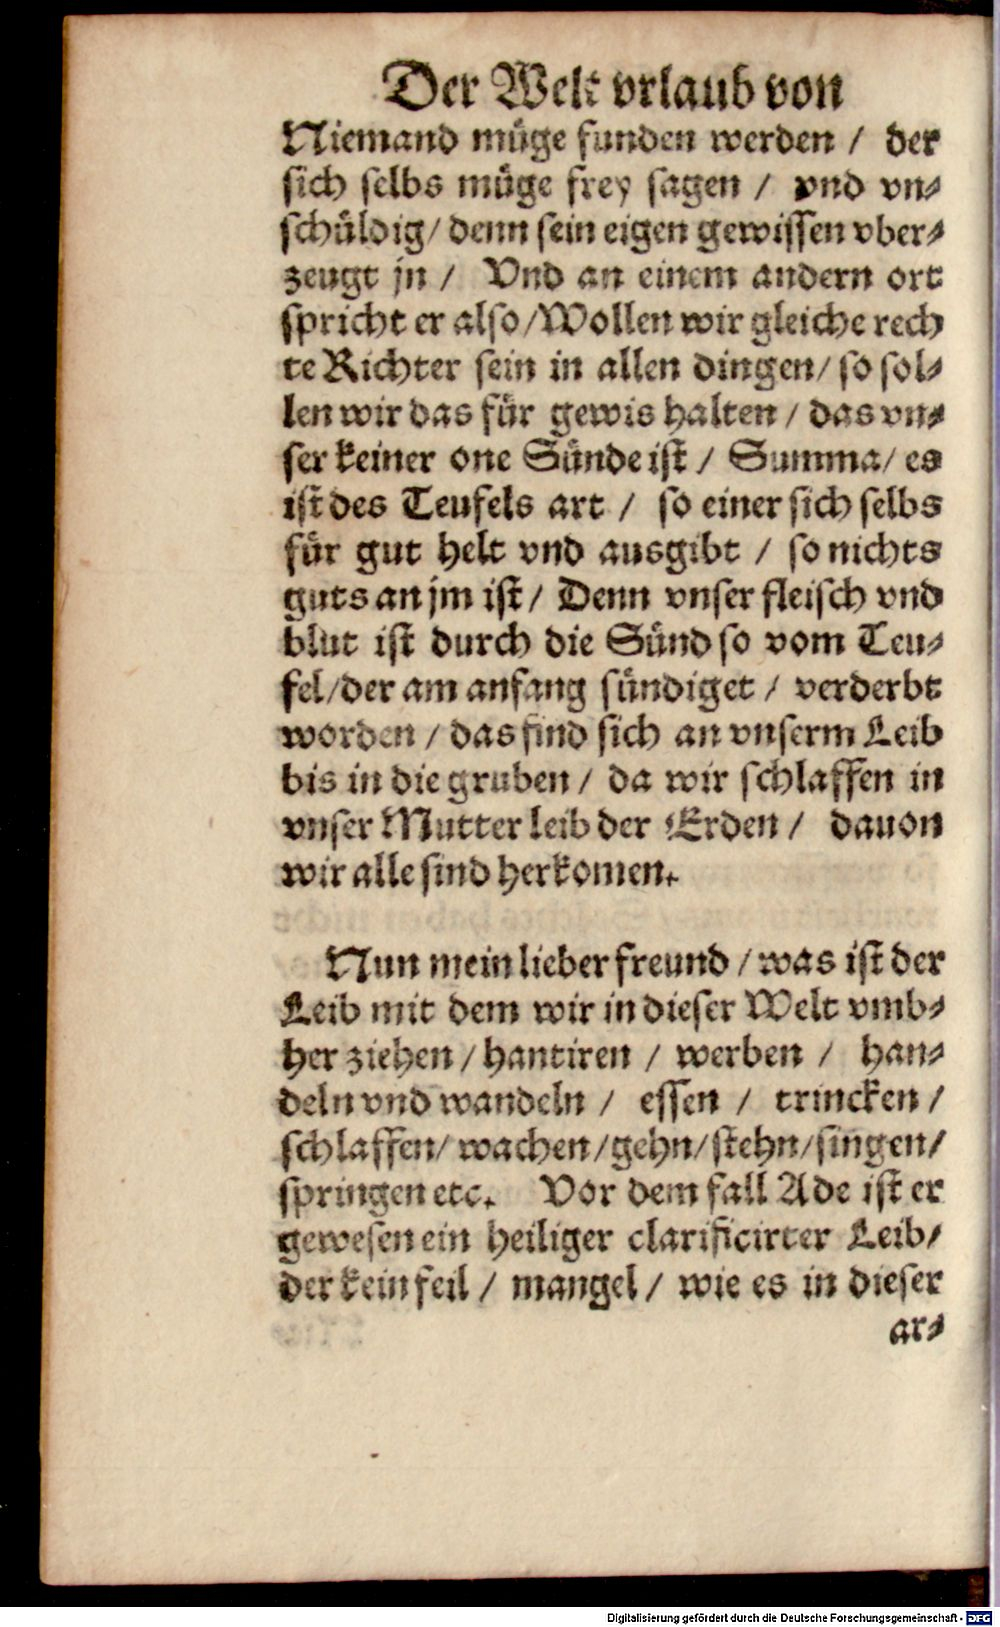 Der Welt vrlaub von
Niemand müge funden werden / der
sich selbs müge frey sagen / vnd vn⸗
schüldig / denn sein eigen gewissen vber⸗
zeugt jn / Vnd an einem andern ort
spricht er also / Wollen wir gleiche rech
te Richter sein in allen dingen / so sol⸗
len wir das für gewis halten / das vn⸗
ser keiner one Sünde ist / Summa / es
ist des Teufels art / so einer sich selbs
für gut helt vnd ausgibt / so nichts
guts an jm ist / Denn vnser fleisch vnd
blut ist durch die Sünd so vom Teu⸗
fel / der am anfang sündiget / verderbt
worden / das find sich an vnserm Leib
bis in die gruben / da wir schlaffen in
vnser Mutter leib der Erden / dauon
wir alle sind herkomen.
Nun mein lieber freund / was ist der
Leib mit dem wir in dieser Welt vmb⸗
her ziehen / hantiren / werben / han⸗
deln vnd wandeln / essen / trincken /
schlaffen / wachen / gehn / stehn / singen /
springen etc. Vor dem fall Ade ist er
gewesen ein heiliger clarificirter Leib /
der kein feil / mangel / wie es in dieser
ar⸗
Digitalisierung gefördert durch die Deutsche Forschungsgemeinschaft - DFG